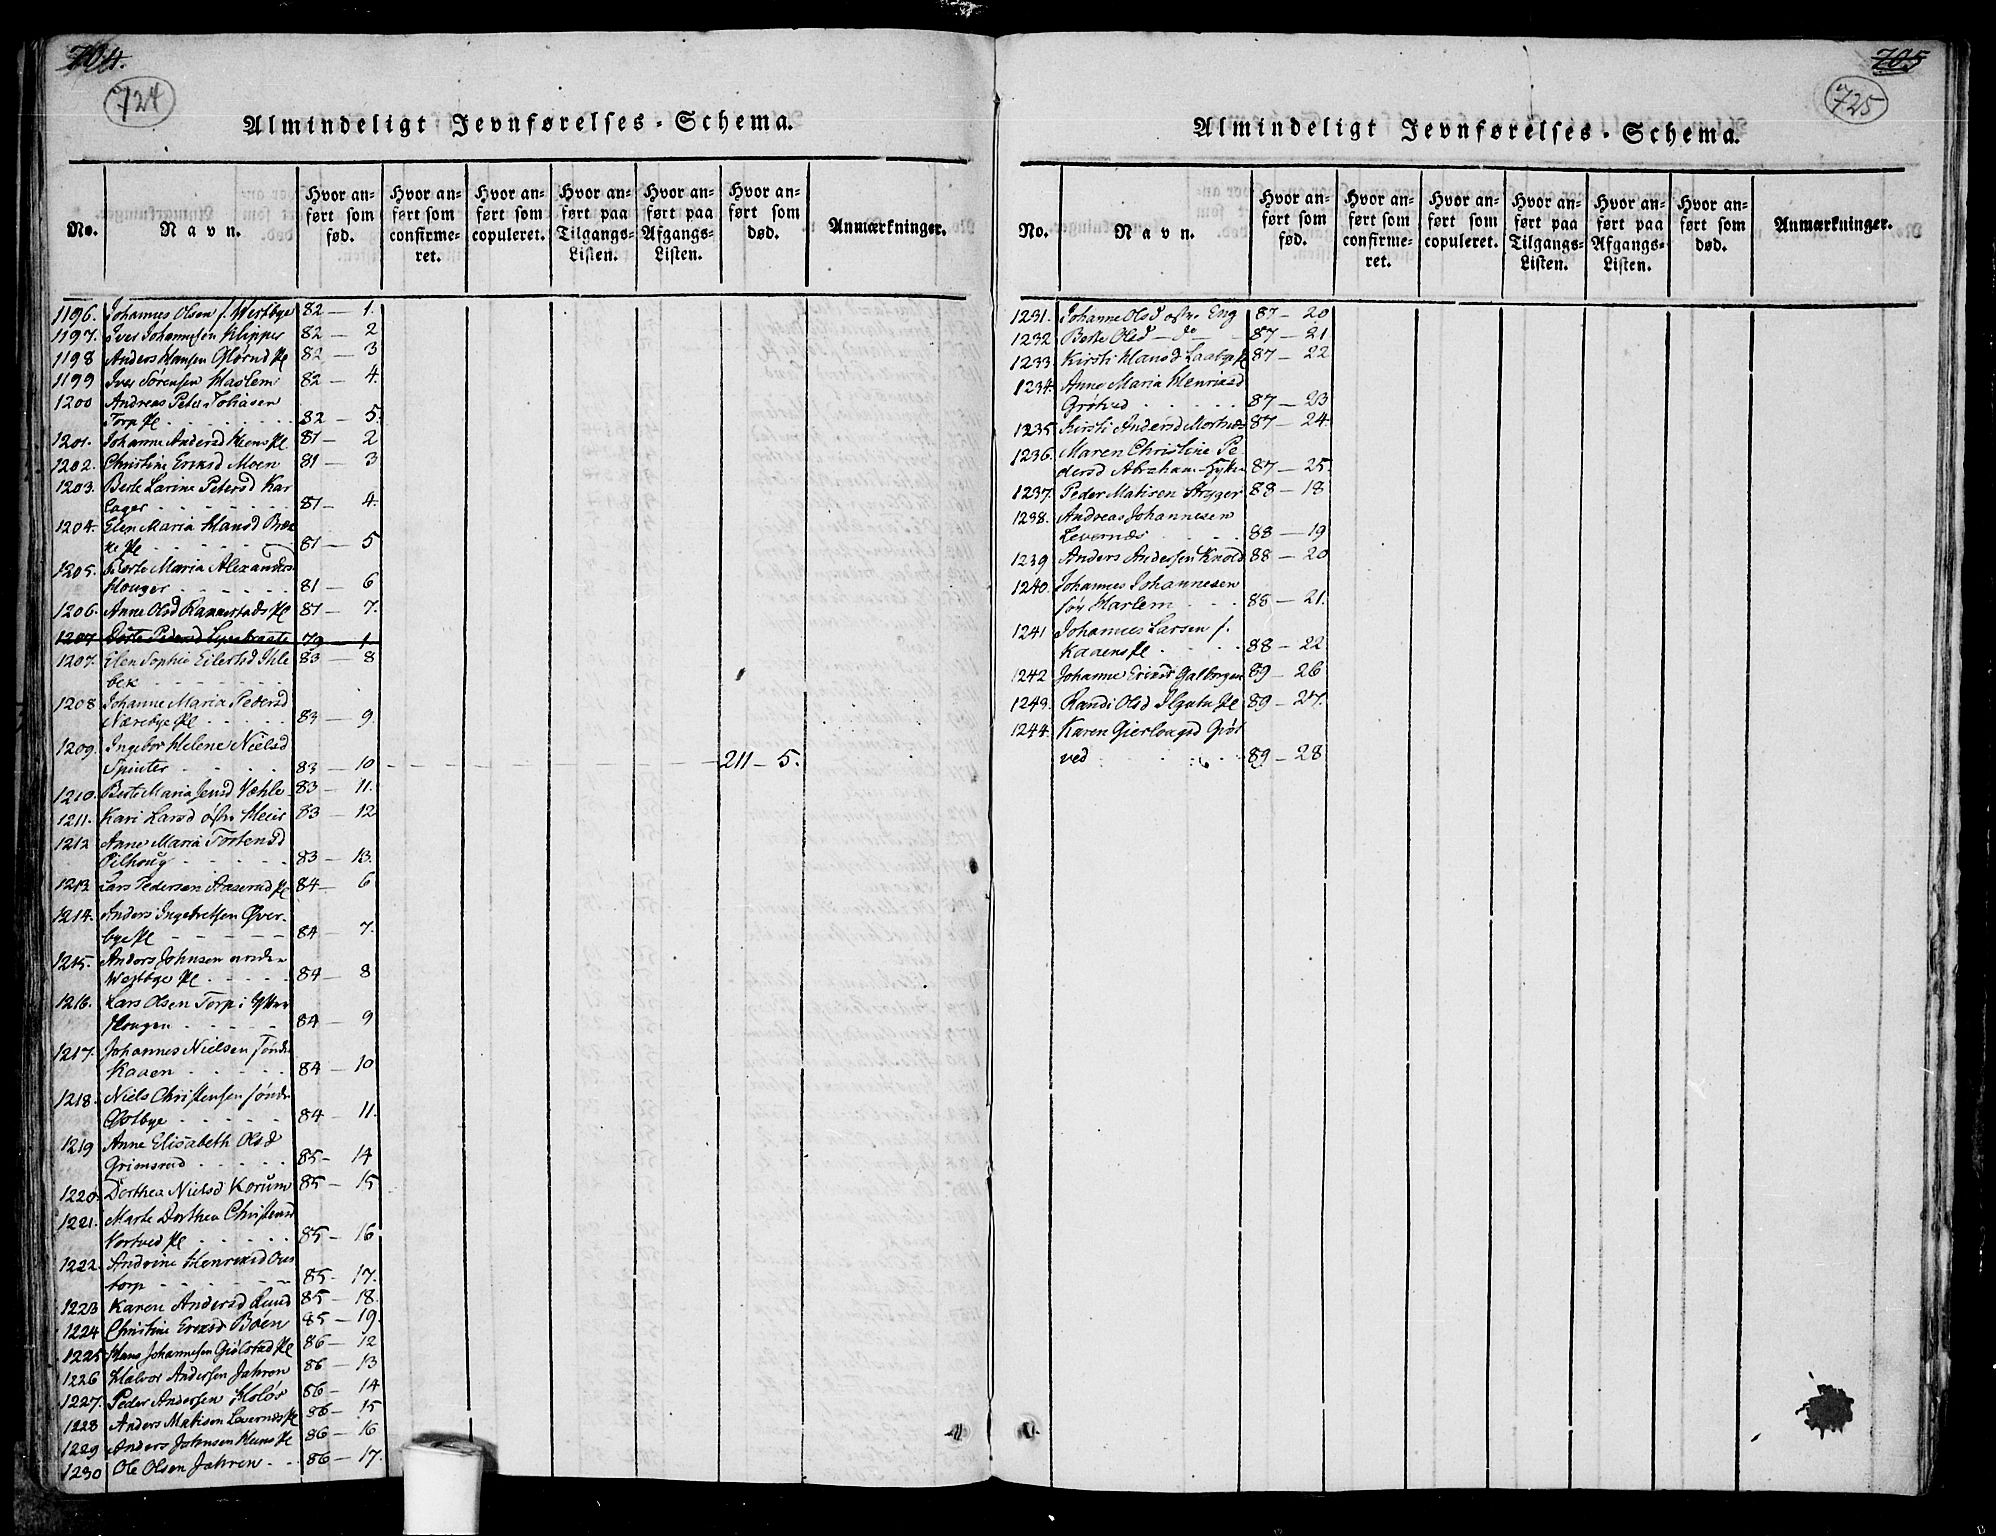 704.
724
Almindeligt Jevnførelses-Schema.
No.
Navn.
Hvor anført som fød.
Hvor anført som confirmeret.
Hvor anført som copuleret.
Hvor anført paa Tilgangs-Listen.
Hvor anført paa Afgangs-Listen.
Hvor anført som død.
Anmærkninger.
1196. Johannes Olsen f. Westbye 82 — 1.
1197. Iver Johannesen Klipper 82 — 2
1198 Anders Hansen Glørud Pl 82 — 3
1199 Iver Sørensen Haslem 82 — 4.
1200 Andreas Peter Tobiasen
Torp Pl 82 — 5.
1201. Johanne Andersd Kiens Pl 81 — 2
1202. Christine Ericsd Moen 81 — 3
1203. Berte Larine Petersd Kar
lager 81 — 4.
1204. Elen Maria Hansd Bæk
ke Pl 81 — 5
1205. Berte Maria Alexanders
Houger 81 — 6
1206. Anne Olsd Kannestads Pl 81 — 7.
1207 Dorte Pedersd 79 1
1207. Elen Sophie Eilertsd Ihle
bek 83 — 8
1208 Johanne Maria Pedersd
Nærebye Pl 83 — 9.
1209. Ingebor Helene Nielsd
Spinter 83 — 10 211 — 5.
1210. Berte Maria Jensd Væhle 83 — 11.
1211. Kari Larsd østre Heie 83 — 12
1212 Anne Maria Torstensd
Pilhoug 83 — 13.
1213 Lars Pedersen Aaserud Pl 84 — 6
1214. Anders Ingebretsen Øver-
bye Pl 84 — 7.
1215. Anders Johnsen
Westbye Pl 84 — 8
1216. Lars Olsen Torp i Ytter
Hougen 84 — 9
1217. Johannes Nielsen Søndr
Kaaen 84 — 10
1218. Niels Christensen søndr
Golbye 84 — 11.
1219 Anne Elisabeth Olsd
Grimsrud 85 — 14
1220. Dorthea Nielsd Korum 85 — 15
1221. Marte Dorthea Christensd
Vortved Pl 85 — 16
1222. Andrine Henricsd Ous
torp 85 — 17.
1223 Karen Andersd Lund 85 — 18.
1224 Christine Ericsd Böen 85 — 19.
1225 Hans Johannesen Giølstad Pl 86 — 12
1226 Halvor Andersen Jahren 86 — 13
1227. Peder Andersen Holøs 86 — 14
1228 Anders Matisen Levernæs Pl 86 — 15
1229 Anders Johnsen Kiens Pl 86 — 16
1230 Ole Olsen Jahren 86 — 17.
705
725
Almindeligt Jevnførelses-Schema.
No.
Navn.
Hvor anført som fød.
Hvor anført som confirmeret.
Hvor anført som copuleret.
Hvor anført paa Tilgangs-Listen.
Hvor anført paa Afgangs-Listen.
Hvor anført som død.
Anmærkninger.
1231. Johanne Olsd østre Eng 87 — 20
1232 Berte Olsd — do — 87 — 21
1233. Kirsti Hansd Laabye Pl 87 — 22
1234. Anne Maria Henricsd
Grøtved 87 — 23
1235 Kirsti Andersd 87 — 24
1236. Maren Christine Pe
dersd Abraham 87 — 25.
1237. Peder Matisen Stryger 88 — 18
1238. Andreas Johannesen
Levernæs 88 — 19
1239 Anders Andersen Knold 88 — 20
1240. Johannes Johannesen
Harlem 88 — 21.
1241 Johannes Larsen f.
Kaaens Pl 88 — 22
1242 Johanne Ericsd Galborgen 89 — 26
1243. Randi Olsd Pl 89 — 27.
1244. Karen Gierlougsd Grøt
ved 89 — 28